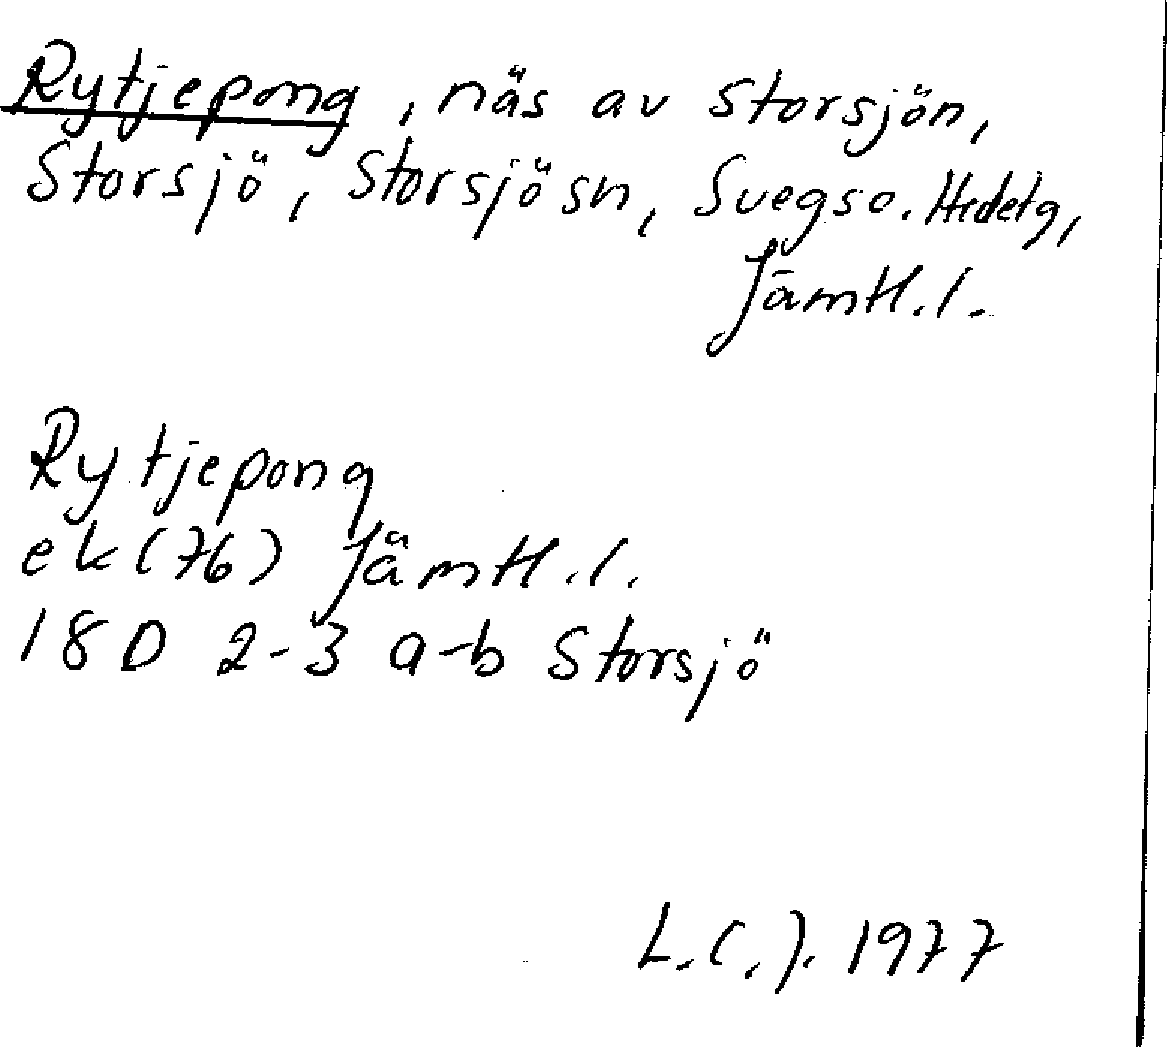 Rytjepong, näs av Storsjön,
Storsjö, Storsjösn, Svegs o. Hedetg,
Jämtl.l.
Rytjepong
ek(76) Jämtl.l.
18D 2-3 a-b Storsjö
L.(.). 1977